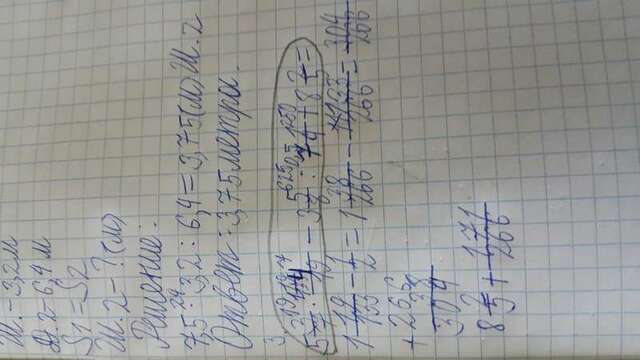 Ш. - 3,2м
Д.2 - 6,4 м
S1 = S2
Ш.2 - ? (м)
Решение:
7,5 · 3,2 : 6,4 = 3,75 (м) Ш.2
Ответ: 3,75 метра.
3
+ 8 2/5 =
1 19/133 - 1/2 = 1 38/266 - 133/266 = 304/266
+ 266
38
304
8 2/5 + 171/266